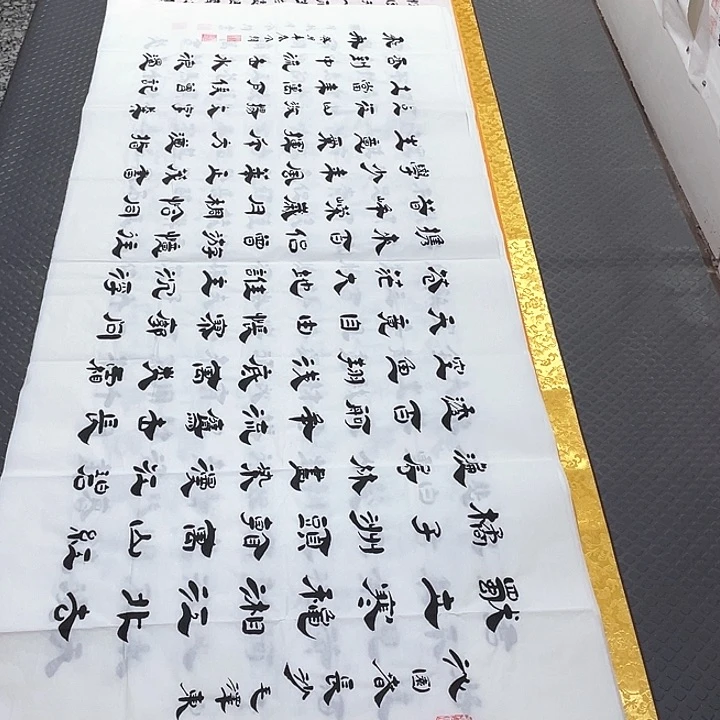 沁園春長沙毛澤東
獨立寒龝湘江北去
橘子洲頭看萬山紅
遍層林盡染漫江碧
透百舸爭流鷹击長
空魚翔淺底萬類霜
天競自由悵寥廓問
蒼茫大地誰主沉浮
攜來百侶曾遊憶往
昔崢嶸歲月稠恰同
學少年風華正茂書
生意氣揮斥方遒指
點江山激揚文字糞
土當年萬戶侯曾記
否到中流击水浪遏
飛舟